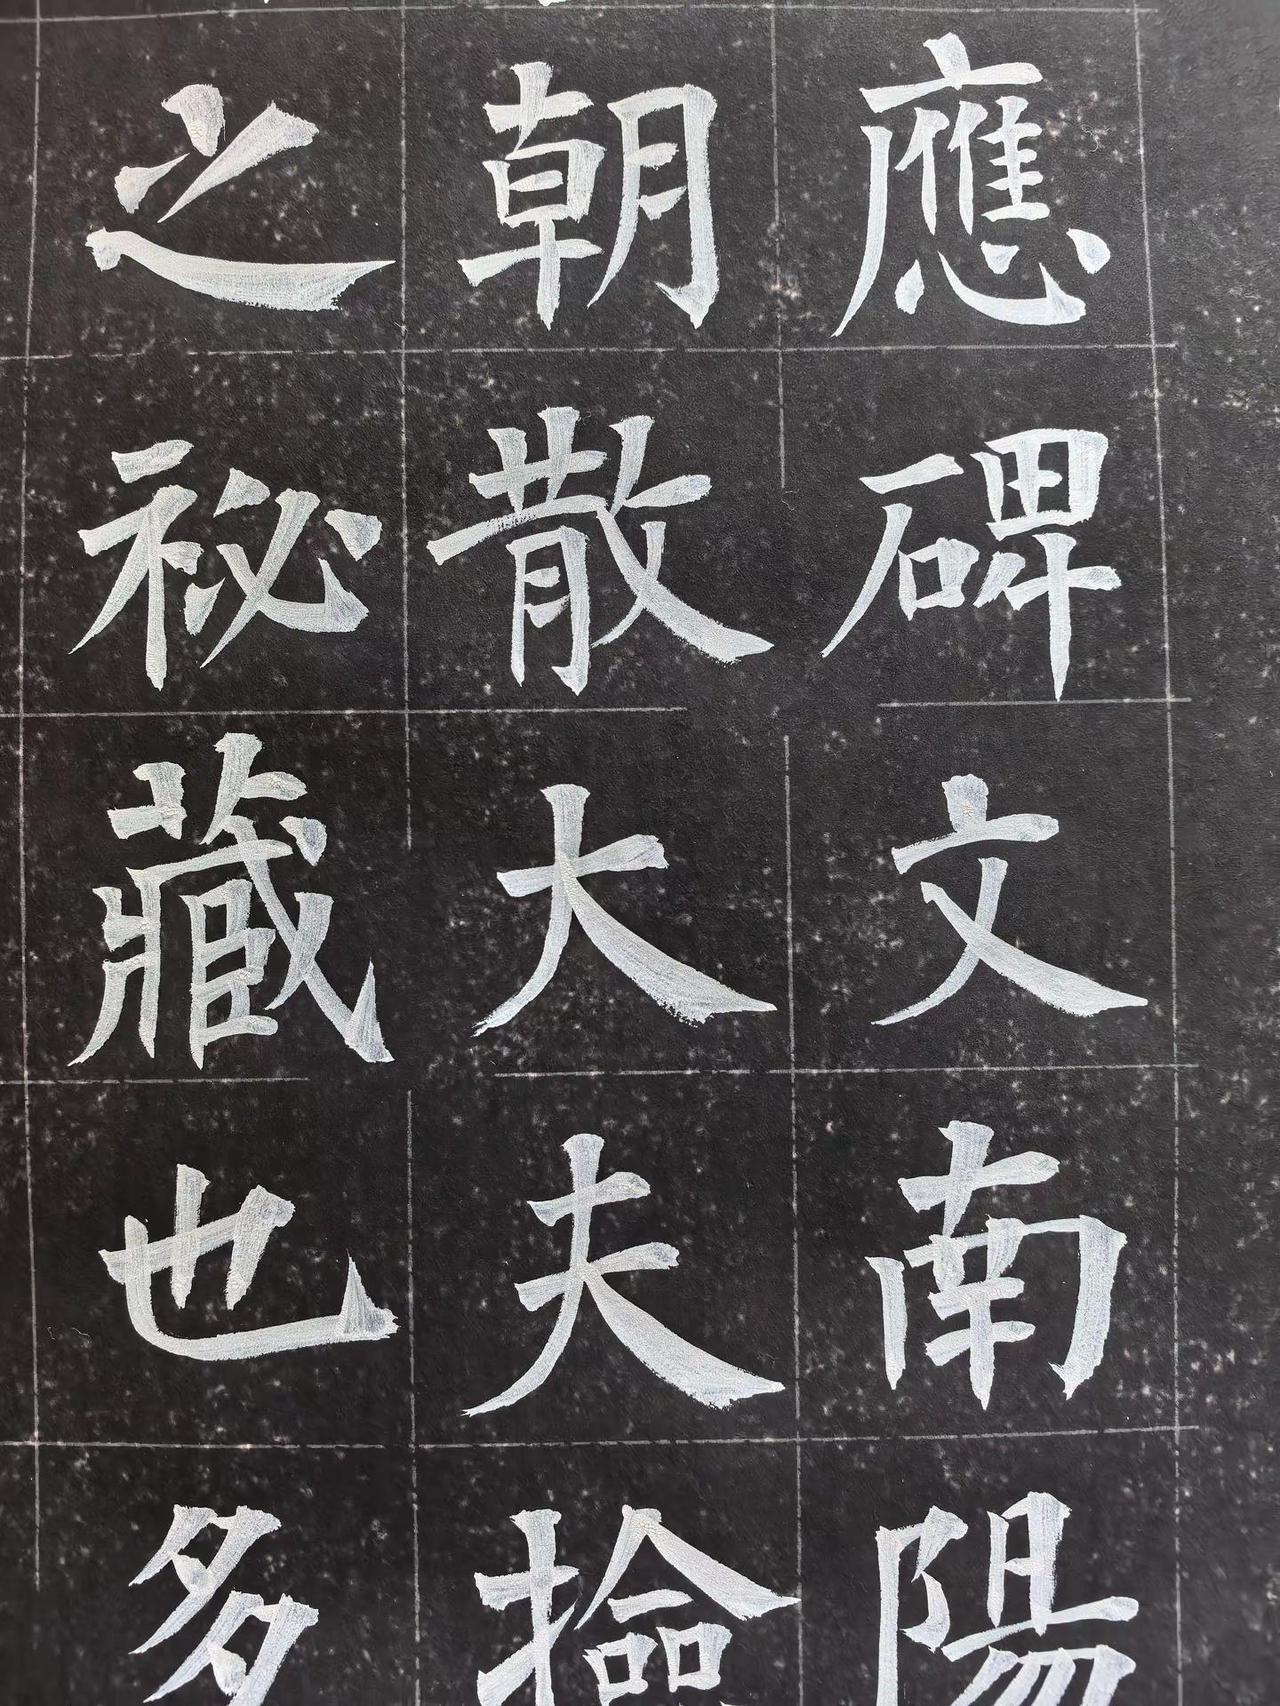 應碑文南陽
朝散大夫撿
之祕藏也多